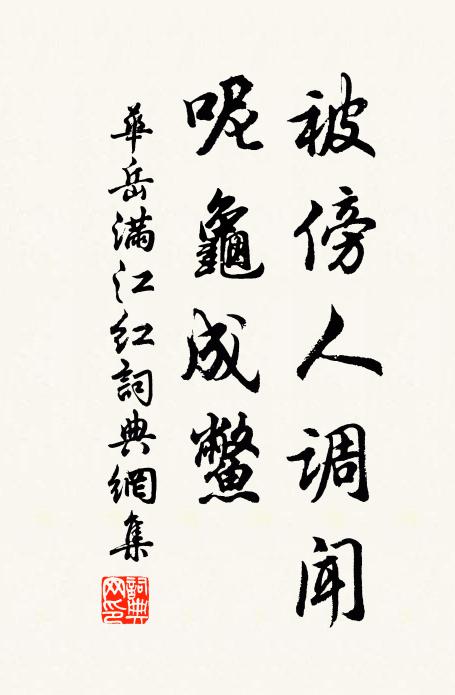 被傍人调闻
呢龜成鱉
華岳滿江红詞典網集
詞典网印